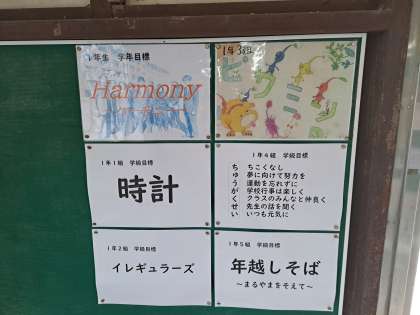 1年生 学年目標
Harmony
1年3組
ピクミン
1年1組 学級目標
時計
1年4組 学級目標
ち ちこくなし
ゅ 夢に向けて努力を
う 運動を忘れずに
が 学校行事は楽しく
く クラスのみんなと仲良く
せ 先生の話を聞く
い いつも元気に
1年2組 学級目標
イレギュラーズ
1年5組 学級目標
年越しそば
～まるやまをそえて～